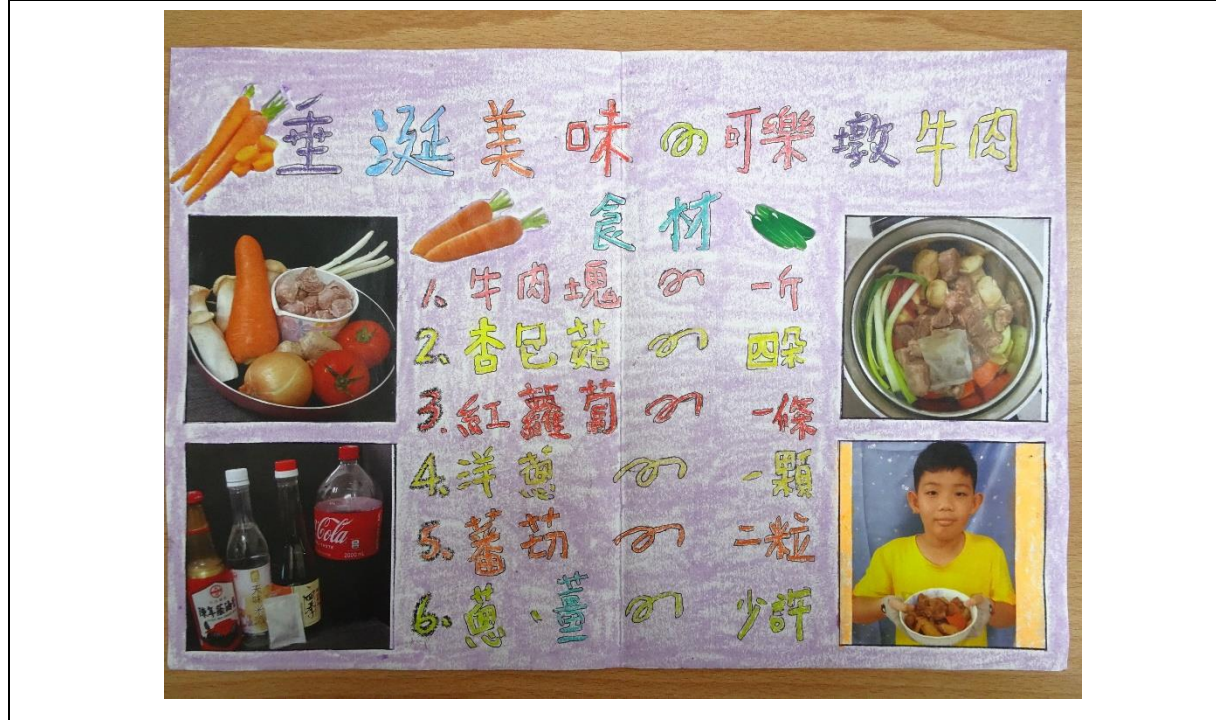 垂涎美味の可樂墩牛肉
食材
1、牛肉塊 の 一斤
2、杏包菇 の 四朵
3、紅蘿蔔 の 一條
4、洋蔥 の 一顆
5、蕃茄 の 二粒
6、蔥、薑 の 少許
Cola